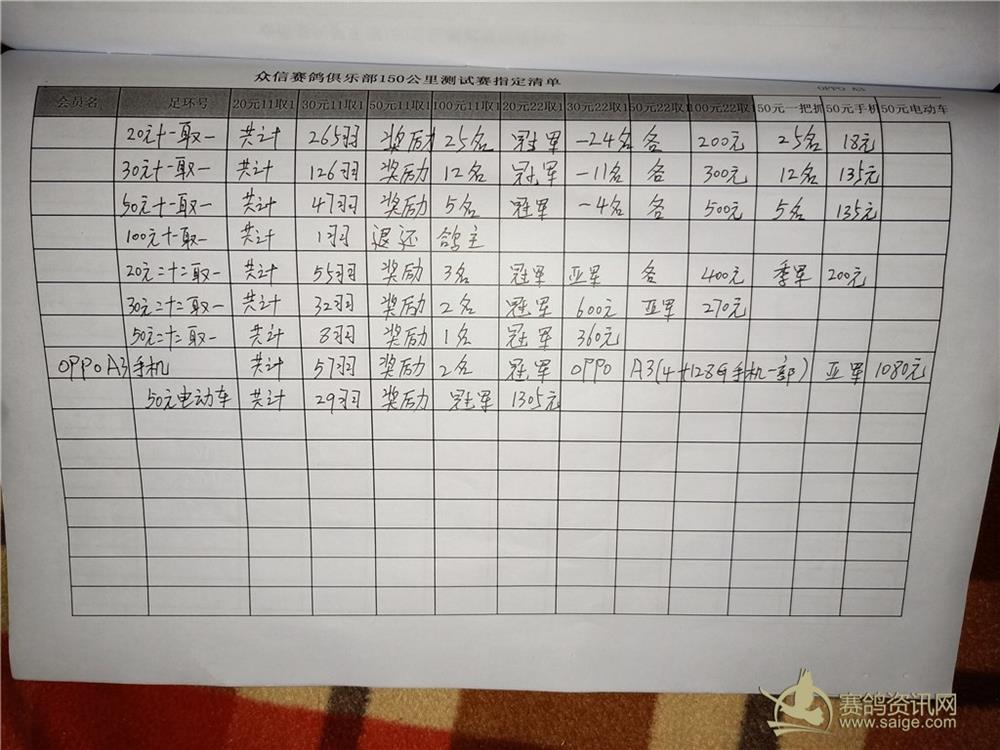 众信赛鸽俱乐部150公里测试赛指定清单
OPPO A3
会员名 足环号 20元11取1 30元11取1 50元11取1 100元11取1 20元22取1 30元22取1 50元22取1 100元22取1 50元一把抓 50元手机 50元电动车
20元十一取一 共计 265羽 奖励 25名 冠军 -24名 各 200元 25名 18元
30元十一取一 共计 126羽 奖励 12名 冠军 -11名 各 300元 12名 135元
50元十一取一 共计 47羽 奖励 5名 冠军 -4名 各 500元 5名 135元
100元十一取一 共计 1羽 退还 鸽主
20元二十二取一 共计 55羽 奖励 3名 冠军 亚军 各 400元 季军 200元
30元二十二取一 共计 32羽 奖励 2名 冠军 600元 亚军 270元
50元二十二取一 共计 8羽 奖励 1名 冠军 360元
OPPO A3手机 共计 57羽 奖励 2名 冠军 OPPO A3(4+128G手机一部) 亚军 1080元
50元电动车 共计 29羽 奖励 冠军 1305元
赛鸽资讯网
www.saige.com